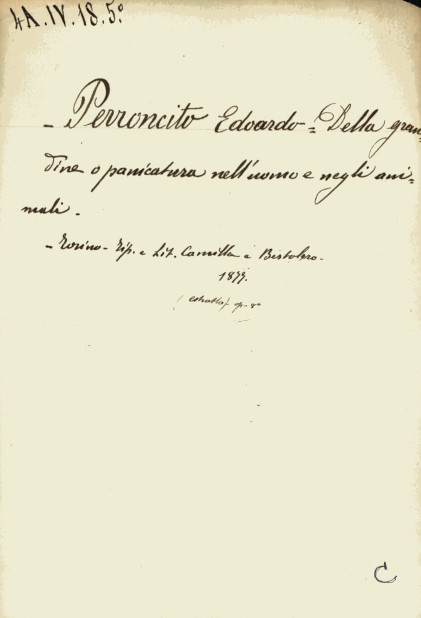 4A.IV.18.5°
- Perroncito Edoardo = Della gran=
dine o panicatura nell'uomo e negli ani=
mali.
- Torino - Tip. e Lit. Camilla e Bertolero.
1877.
(estratto) op. 8°
C